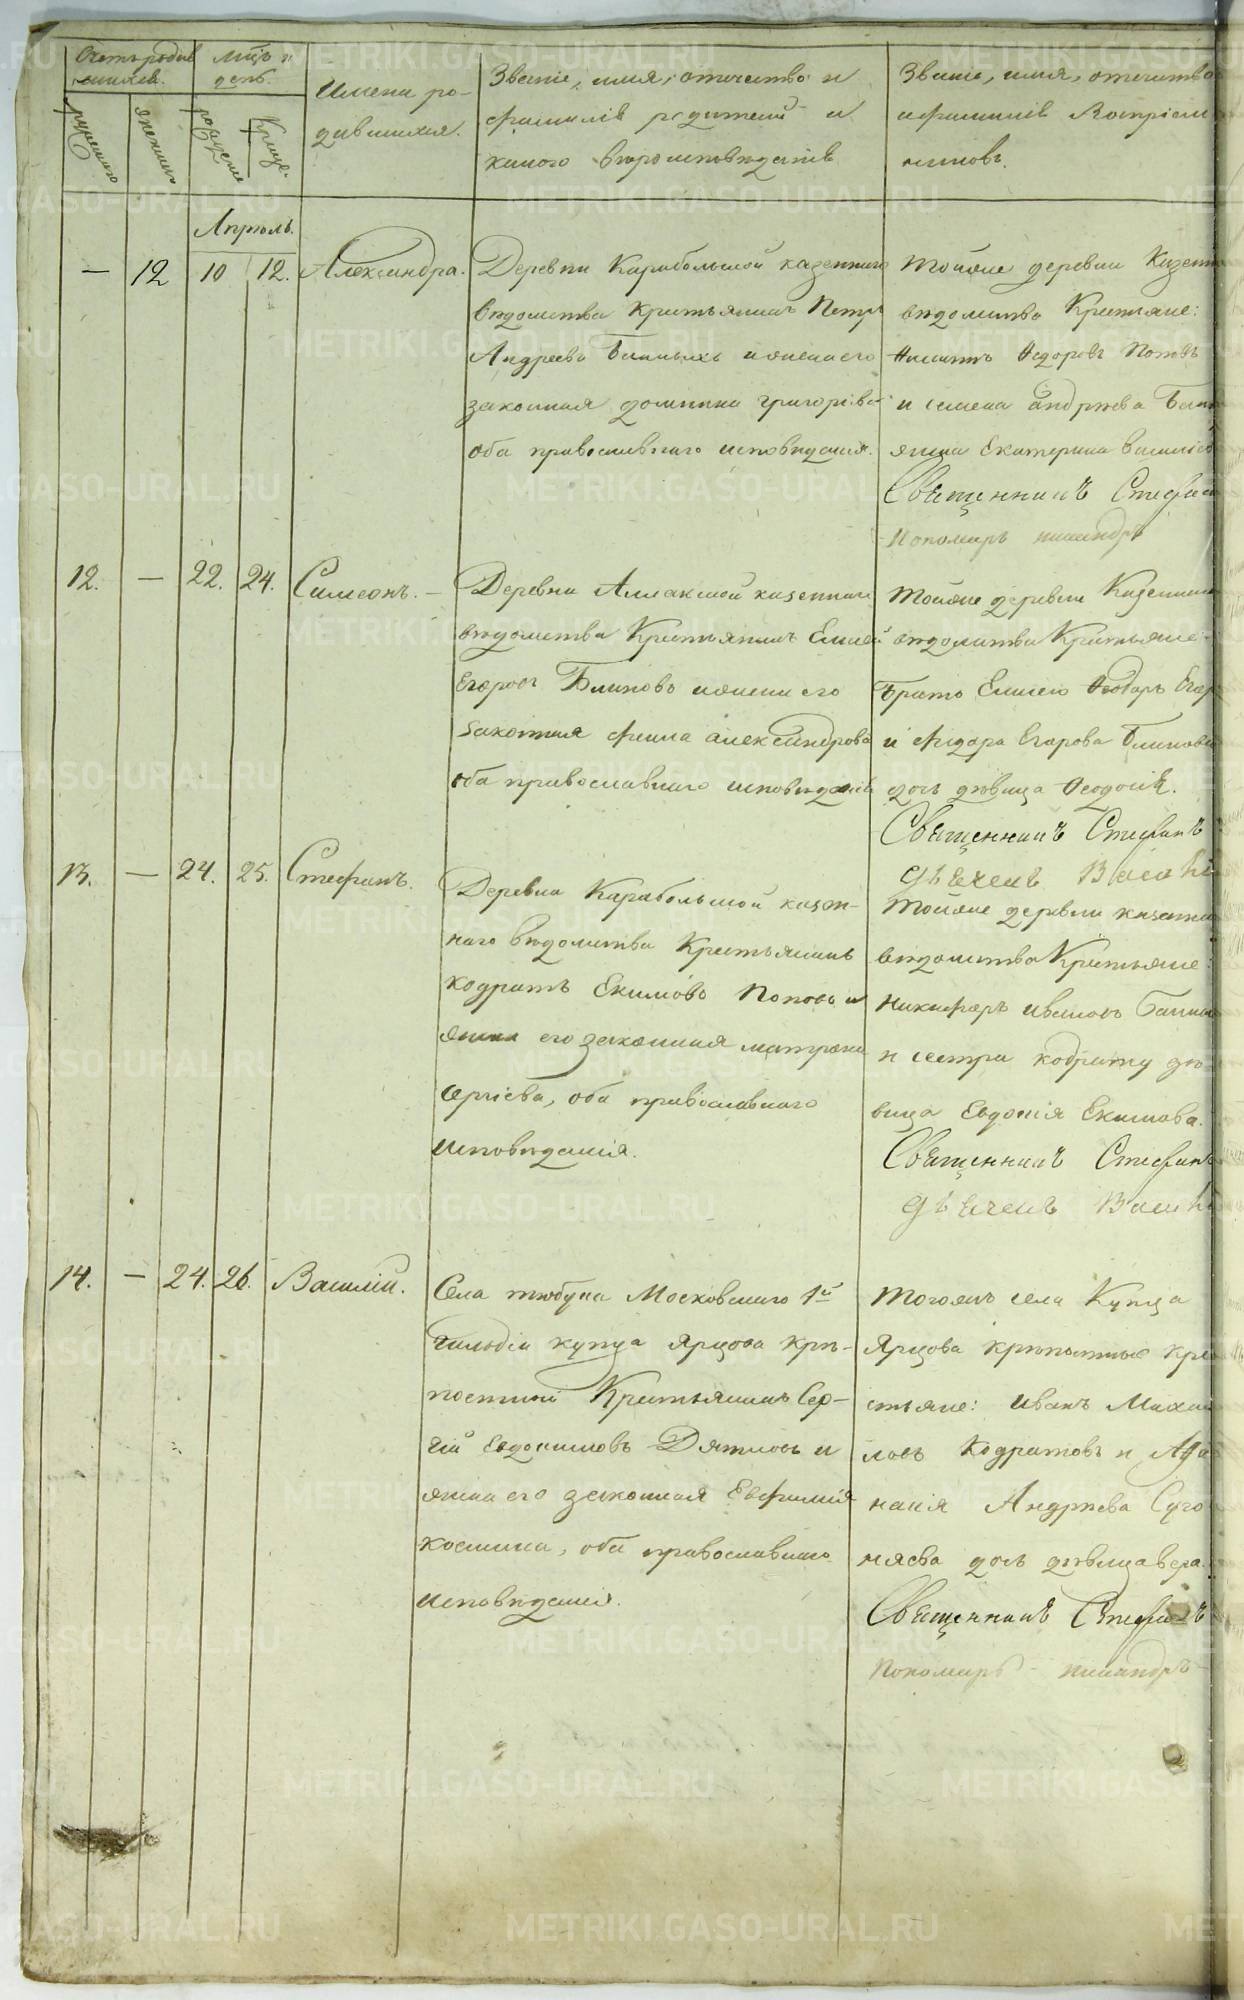 Счетъ родив
шихся.
Мѣсяцъ и
день
мужеска
женска
рожденія
Креще-
Имена ро-
дившихся.
Званіе, имя, отчество и
фамилія родителей и
какого вѣроисповѣданія
Званіе, имя, отчество
и фамилія Воспріем
никовъ.
Апрѣль.
— 12 10 12. Александра.
Деревни Карабольской казеннаго
вѣдомства Крестьянинъ Петръ
Андреевъ и жена его
законная Домника Григорьева
оба православнаго исповѣданія.
Тойже деревни Казенн
вѣдомства Крестьяне:
Ѳедоровъ Поповъ
и Андрѣева
жена Екатерина
Священникъ Стефан
Пономарь никандръ
12. — 22. 24. Симеонъ. —
Деревни казеннаго
вѣдомства Крестьянинъ Елисей
Егоровъ Блиновъ и жена его
законная Александрова
оба православнаго исповѣданія
Тойже деревни Казеннаго
вѣдомства Крестьяне
братъ Елисею Ѳеодоръ Егор
и Ѳедора Егорова Блинова
дочь дѣвица Ѳеодосія.
Священникъ Стефанъ
Дьячекъ Васил
13. — 24. 25. Стефанъ.
Деревни Карабольской казен-
наго вѣдомства Крестьянинъ
Кодратъ Екимовъ Поповъ и
жена его законная матрона
Сергіева, оба православнаго
исповѣданія.
Тойже деревни казенна
вѣдомства Крестьяне:
Никифоръ Ивановъ
и сестра кодрату дѣ-
вица Евдокія Екимова.
Священникъ Стефанъ
Дьячекъ Васил
14. — 24. 26. Василій.
Села тюбука Московскаго 1й
гильдіи купца Ярцова крѣ-
постной Крестьянинъ Сер-
гій Евдокимовъ Дятловъ и
жена его законная Евфимія
Космина, оба православнаго
исповѣданія.
Тогожъ села Купца
Ярцова крѣпостные кре
стьяне: Иванъ Михаи
ловъ Кодратовъ и Афа
насія Андрѣева Суго
няева дочь дѣвица вера.
Священникъ Стефанъ
Пономарь никандръ
METRIKI.GASO-URAL.RU